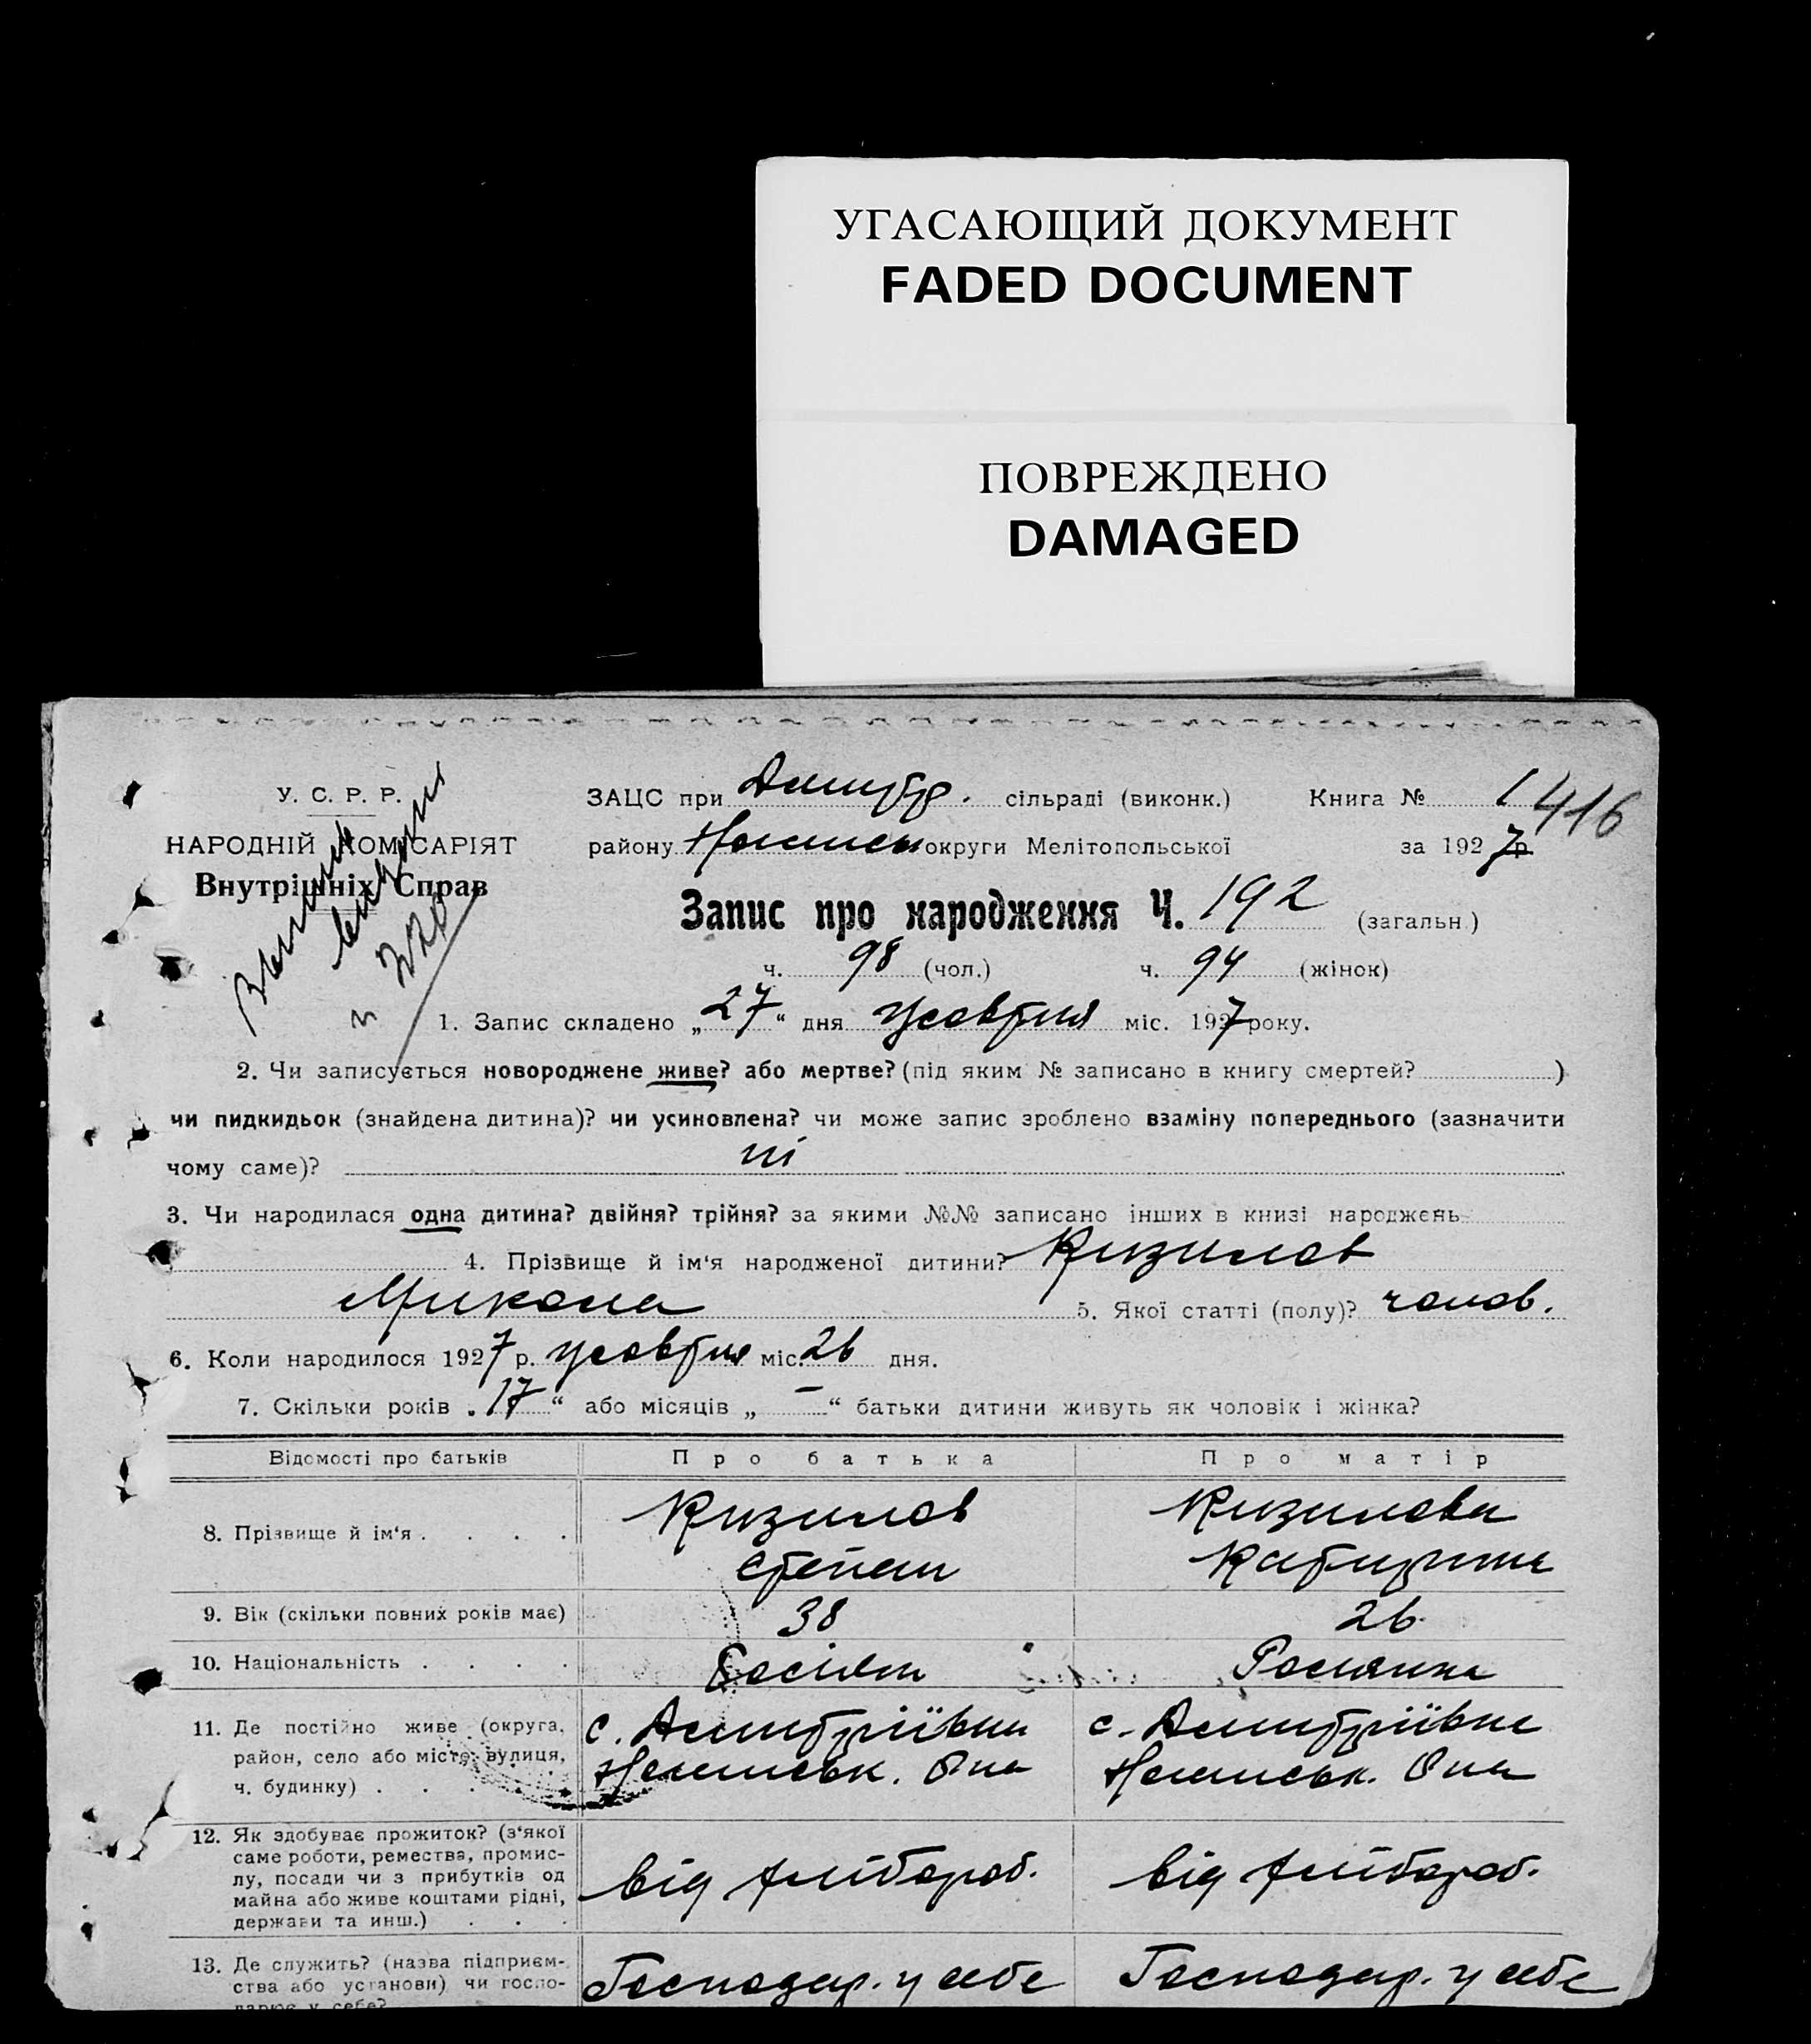 УГАСАЮЩИЙ ДОКУМЕНТ
FADED DOCUMENT
ПОВРЕЖДЕНО
DAMAGED
У. С. Р. Р.
НАРОДНІЙ КОМІСАРІЯТ
Внутрішніх Справ
ЗАЦС при Дмитр. сільраді (виконк.) Книга № 1
416
району округи Мелітопольської за 1927 р.
Запис про народження Ч. 192 (загальн.)
ч. 98 (чол.) ч. 94 (жінок)
1. Запис складено „27“ дня жовтня міс. 1927 року.
2. Чи записується новороджене живе? або мертве? (під яким № записано в книгу смертей? )
чи пидкидьок (знайдена дитина)? чи усиновлена? чи може запис зроблено взаміну попереднього (зазначити
чому саме)? ні
3. Чи народилася одна дитина? двійня? трійня? за якими №№ записано інших в книзі народжень
4. Прізвище й ім‘я народженої дитини? Кизилов
Микола 5. Якої статті (полу)? чолов.
6. Коли народилося 1927 р. жовтня міс. 26 дня.
7. Скільки років „17“ або місяців „—“ батьки дитини живуть як чоловік і жінка?
Відомості про батьків Про батька Про матір
8. Прізвище й ім‘я . . . . Кизилов Степан Кизилова Катерина
9. Вік (скільки повних років має) 38 26
10. Національність . . . . Росіян Росіянка
11. Де постійно живе (округа, район, село або місто, вулиця, ч. будинку) . . . с. Дмитріївка с. Дмитріївка
12. Як здобуває прожиток? (з‘якої саме роботи, ремества, промислу, посади чи з прибутків од майна або живе коштами рідні, держави та инш.) . . . від хлібороб. від хлібороб.
13. Де служить? (назва підприємства або установи) чи господарює у себе? Господар. у себе Господар. у себе